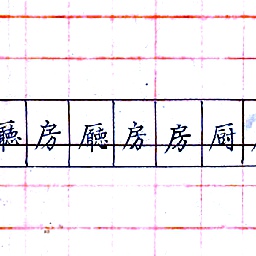 廳房廳房房厨